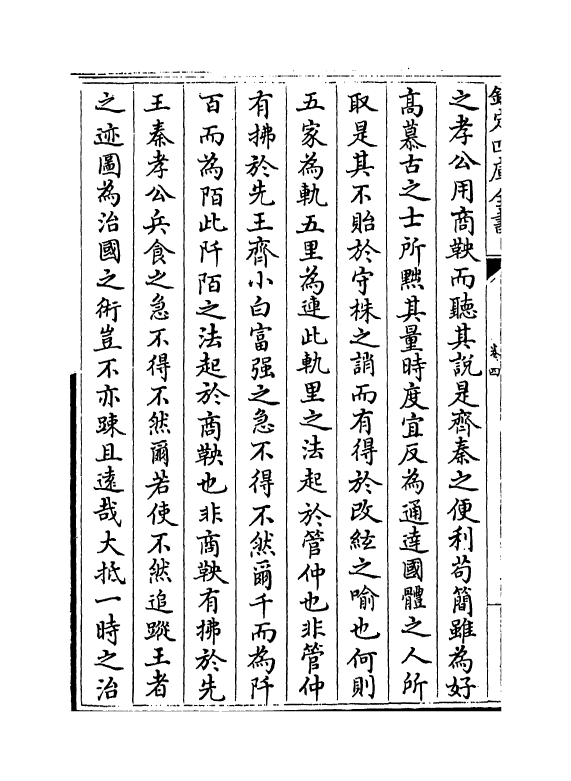 欽定四庫全書
卷四
之孝公用商鞅而聽其說是齊秦之便利苟簡雖為好
高慕古之士所黜其量時度宜反為通達國體之人所
取是其不貽於守株之誚而有得於改絃之喻也何則
五家為軌五里為連此軌里之法起於管仲也非管仲
有拂於先王齊小白富强之急不得不然爾千而為阡
百而為陌此阡陌之法起於商鞅也非商鞅有拂於先
王秦孝公兵食之急不得不然爾若使不然追蹤王者
之迹圖為治國之術豈不亦踈且遠哉大抵一時之治